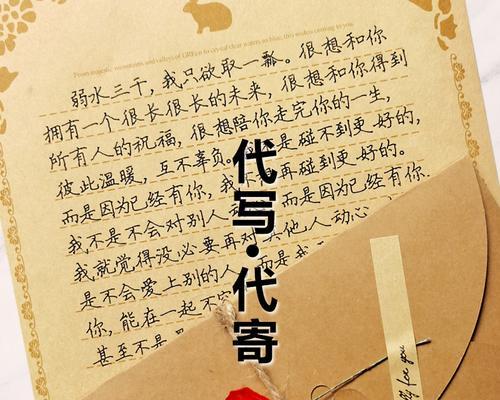 弱水三千，我只欲取一瓢。很想和你
拥有一个很长很长的未来，很想和你得到
所有人的祝福，很想陪你走完你的一生，
彼此温暖，互不辜负。是碰不到更好的，
而是因为已经有你，我再碰到更好的。
不是不会对别人动而是因为已经有你.
我就觉得没必要再对其他人动心
是不会爱上别的人而是我
你，能在一起不
甚至不是
代写·代寄
for you